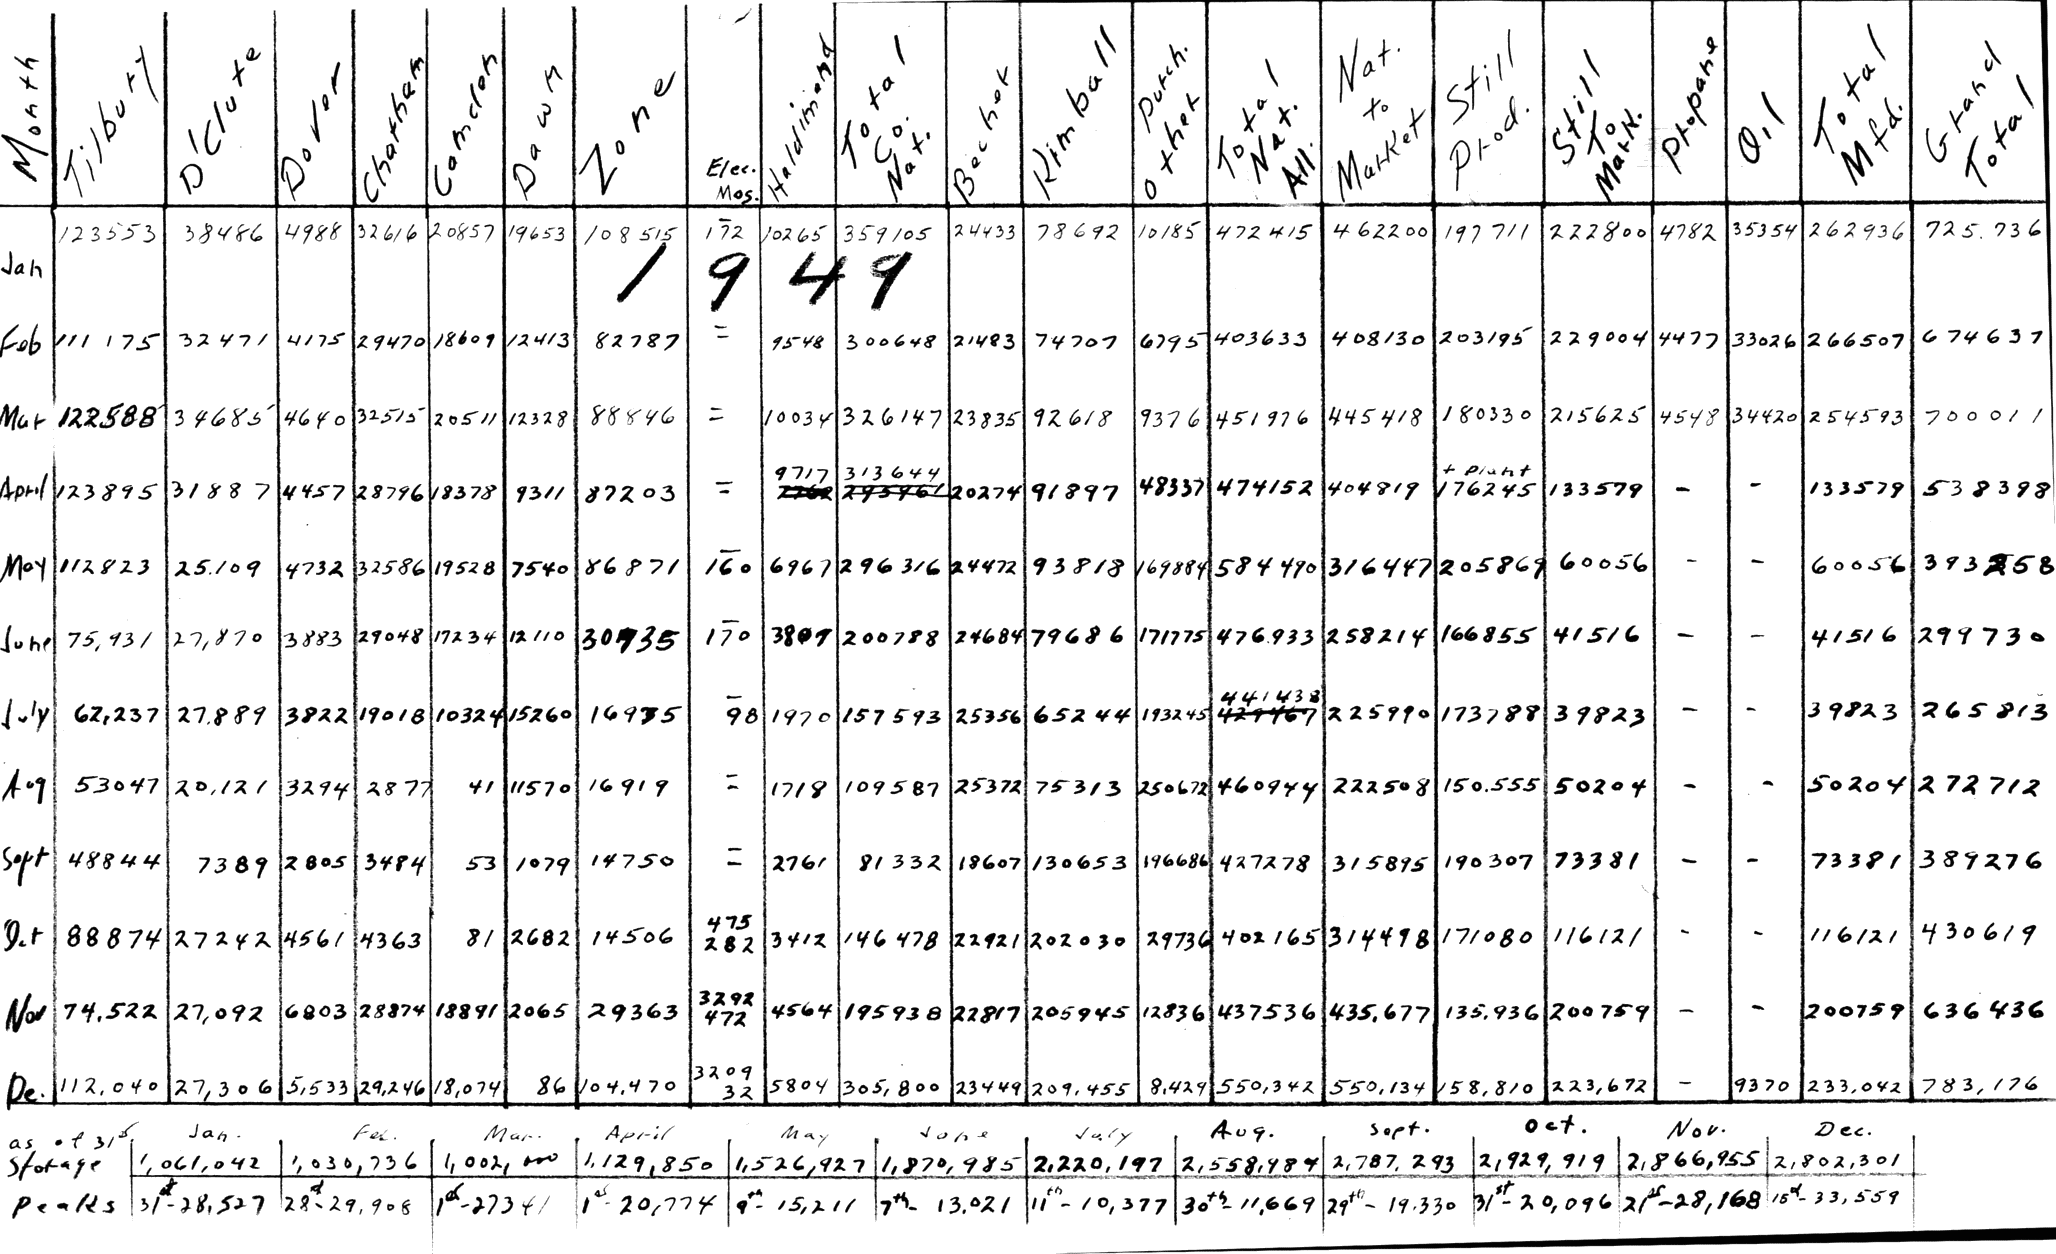 Month Tilbury D'Clute Dover Chatham Camden Dawn Zone Elec. Mos. Haldimand Total Co. Nat. Becher Kimball Purch. Other Total Nat. All. Nat. to Market Still Prod. Still To Mark. Propane Oil Total Mfd. Grand Total
Jan 123553 38486 4988 32616 20857 19653 108515 172 10265 359105 24433 78692 10185 472415 462200 197711 222800 4782 35354 262936 725.736
1949
Feb 111175 32471 4175 29470 18609 12413 82787 = 9548 300648 21483 74707 6795 403633 408130 203195 229004 4477 33026 266507 674637
Mar 122588 34685 4640 32515 20511 12328 88846 = 10034 326147 23835 92618 9376 451976 445418 180330 215625 4548 34420 254593 700011
9717 313644 + Plant
April 123895 31887 4457 28796 18378 9311 87203 = 20274 91897 48337 474152 404819 176245 133579 - - 133579 538398
May 112823 25.109 4732 32586 19528 7540 86871 160 6967 296316 24472 93818 169884 584490 316447 205869 60056 - - 60056 393258
June 75,931 27,870 3883 29048 17234 12110 30935 170 3809 200788 24684 79686 171775 476.933 258214 166855 41516 - - 41516 299730
441438
July 62,237 27.889 3822 19018 10324 15260 16935 98 1970 157593 25356 65244 193245 429467 225990 173788 39823 - - 39823 265813
Aug 53047 20,121 3294 2877 41 11570 16919 = 1718 109587 25372 75313 250672 460944 222508 150.555 50204 - - 50204 272712
Sept 48844 7389 2805 3484 53 1079 14750 = 2761 81332 18607 130653 196686 427278 315895 190307 73381 - - 73381 389276
475
Oct 88874 27242 4561 4363 81 2682 14506 282 3412 146478 22921 202030 29736 402165 314498 171080 116121 - - 116121 430619
3292
Nov 74.522 27,092 6803 28874 18891 2065 29363 472 4564 195938 22817 205945 12836 437536 435,677 135.936 200759 - - 200759 636436
3209
De. 112,040 27,306 5,533 29,246 18,074 86 104,470 32 5804 305,800 23449 209,455 8,429 550,342 550,134 158,810 223,672 - 9370 233,042 783,176
as of 31st Jan. Feb. Mar. April May June July Aug. Sept. Oct. Nov. Dec.
Storage 1,061,042 1,030,736 1,002,000 1,129,850 1,526,927 1,870,985 2,220,197 2,558,484 2,787,293 2,929,919 2,866,955 2,802,301
Peaks 31st-28,527 28st-29,908 1st-27341 1st-20,774 9th-15,211 7th-13.021 11th-10,377 30th-11,669 29th-19.330 31st-20,096 21st-28,168 15st-33,559